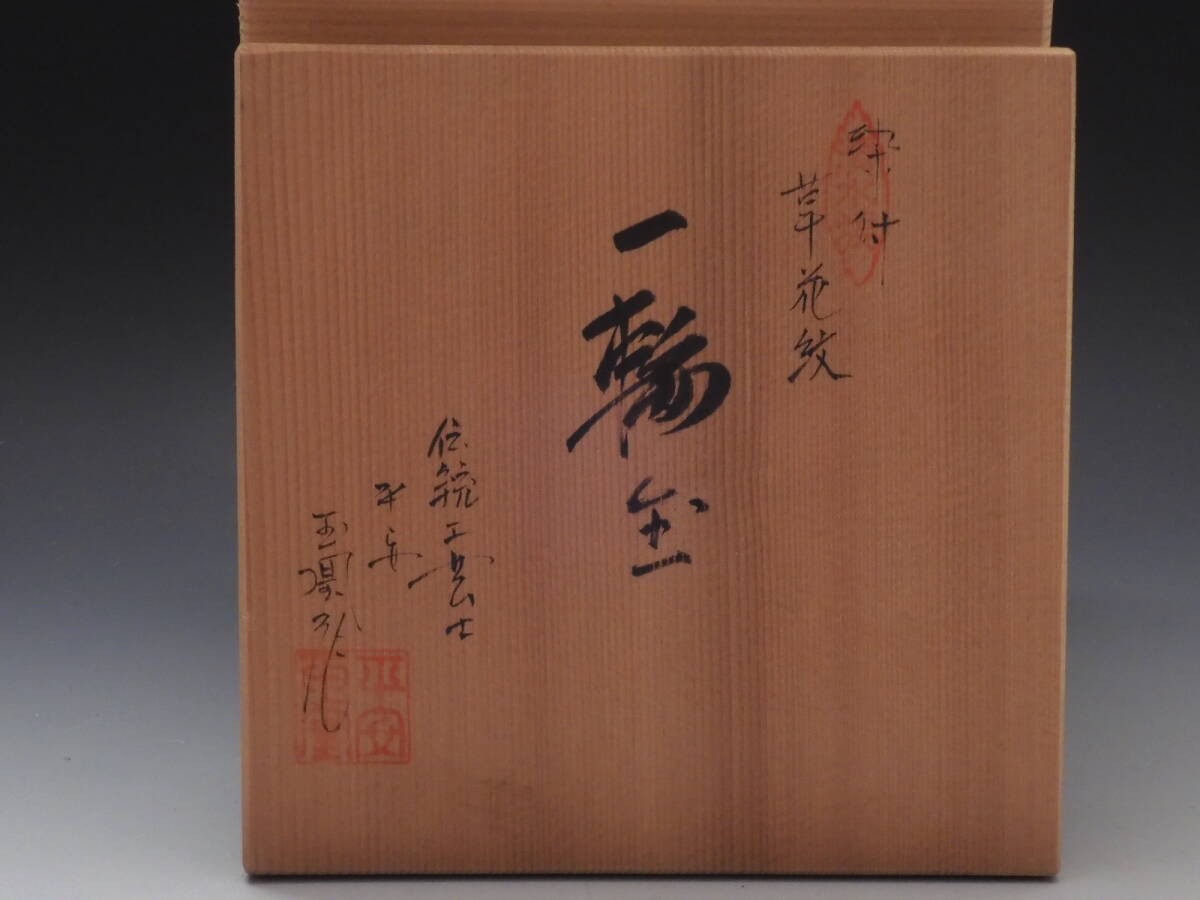 染付
草花紋
一輪生
伝統工芸士
平安
平安